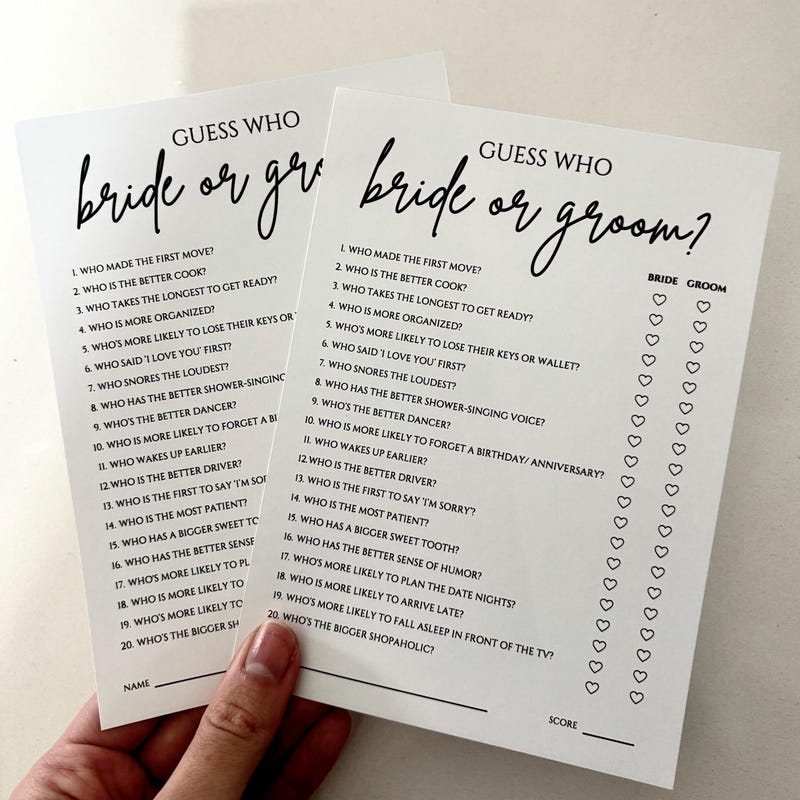 GUESS WHO
bride or gro
1. WHO MADE THE FIRST MOVE?
2. WHO IS THE BETTER COOK?
3. WHO TAKES THE LONGEST TO GET READY?
4. WHO IS MORE ORGANIZED?
5. WHO'S MORE LIKELY TO LOSE THEIR KEYS OR
6. WHO SAID 'I LOVE YOU' FIRST?
7. WHO SNORES THE LOUDEST?
8. WHO HAS THE BETTER SHOWER-SINGING
9. WHO'S THE BETTER DANCER?
10. WHO IS MORE LIKELY TO FORGET A BI
11. WHO WAKES UP EARLIER?
12.WHO IS THE BETTER DRIVER?
13. WHO IS THE FIRST TO SAY 'I'M SOR
14. WHO IS THE MOST PATIENT?
15. WHO HAS A BIGGER SWEET TO
16. WHO HAS THE BETTER SENSE
17. WHO'S MORE LIKELY TO PL
18. WHO IS MORE LIKELY TO
19. WHO'S MORE LIKELY TO
20. WHO'S THE BIGGER SH
NAME
GUESS WHO
bride or groom?
BRIDE GROOM
1. WHO MADE THE FIRST MOVE?
2. WHO IS THE BETTER COOK?
3. WHO TAKES THE LONGEST TO GET READY?
4. WHO IS MORE ORGANIZED?
5. WHO'S MORE LIKELY TO LOSE THEIR KEYS OR WALLET?
6. WHO SAID 'I LOVE YOU' FIRST?
7. WHO SNORES THE LOUDEST?
8. WHO HAS THE BETTER SHOWER-SINGING VOICE?
9. WHO'S THE BETTER DANCER?
10. WHO IS MORE LIKELY TO FORGET A BIRTHDAY/ ANNIVERSARY?
11. WHO WAKES UP EARLIER?
12.WHO IS THE BETTER DRIVER?
13. WHO IS THE FIRST TO SAY 'I'M SORRY?
14. WHO IS THE MOST PATIENT?
15. WHO HAS A BIGGER SWEET TOOTH?
16. WHO HAS THE BETTER SENSE OF HUMOR?
17. WHO'S MORE LIKELY TO PLAN THE DATE NIGHTS?
18. WHO IS MORE LIKELY TO ARRIVE LATE?
19. WHO'S MORE LIKELY TO FALL ASLEEP IN FRONT OF THE TV?
20. WHO'S THE BIGGER SHOPAHOLIC?
SCORE